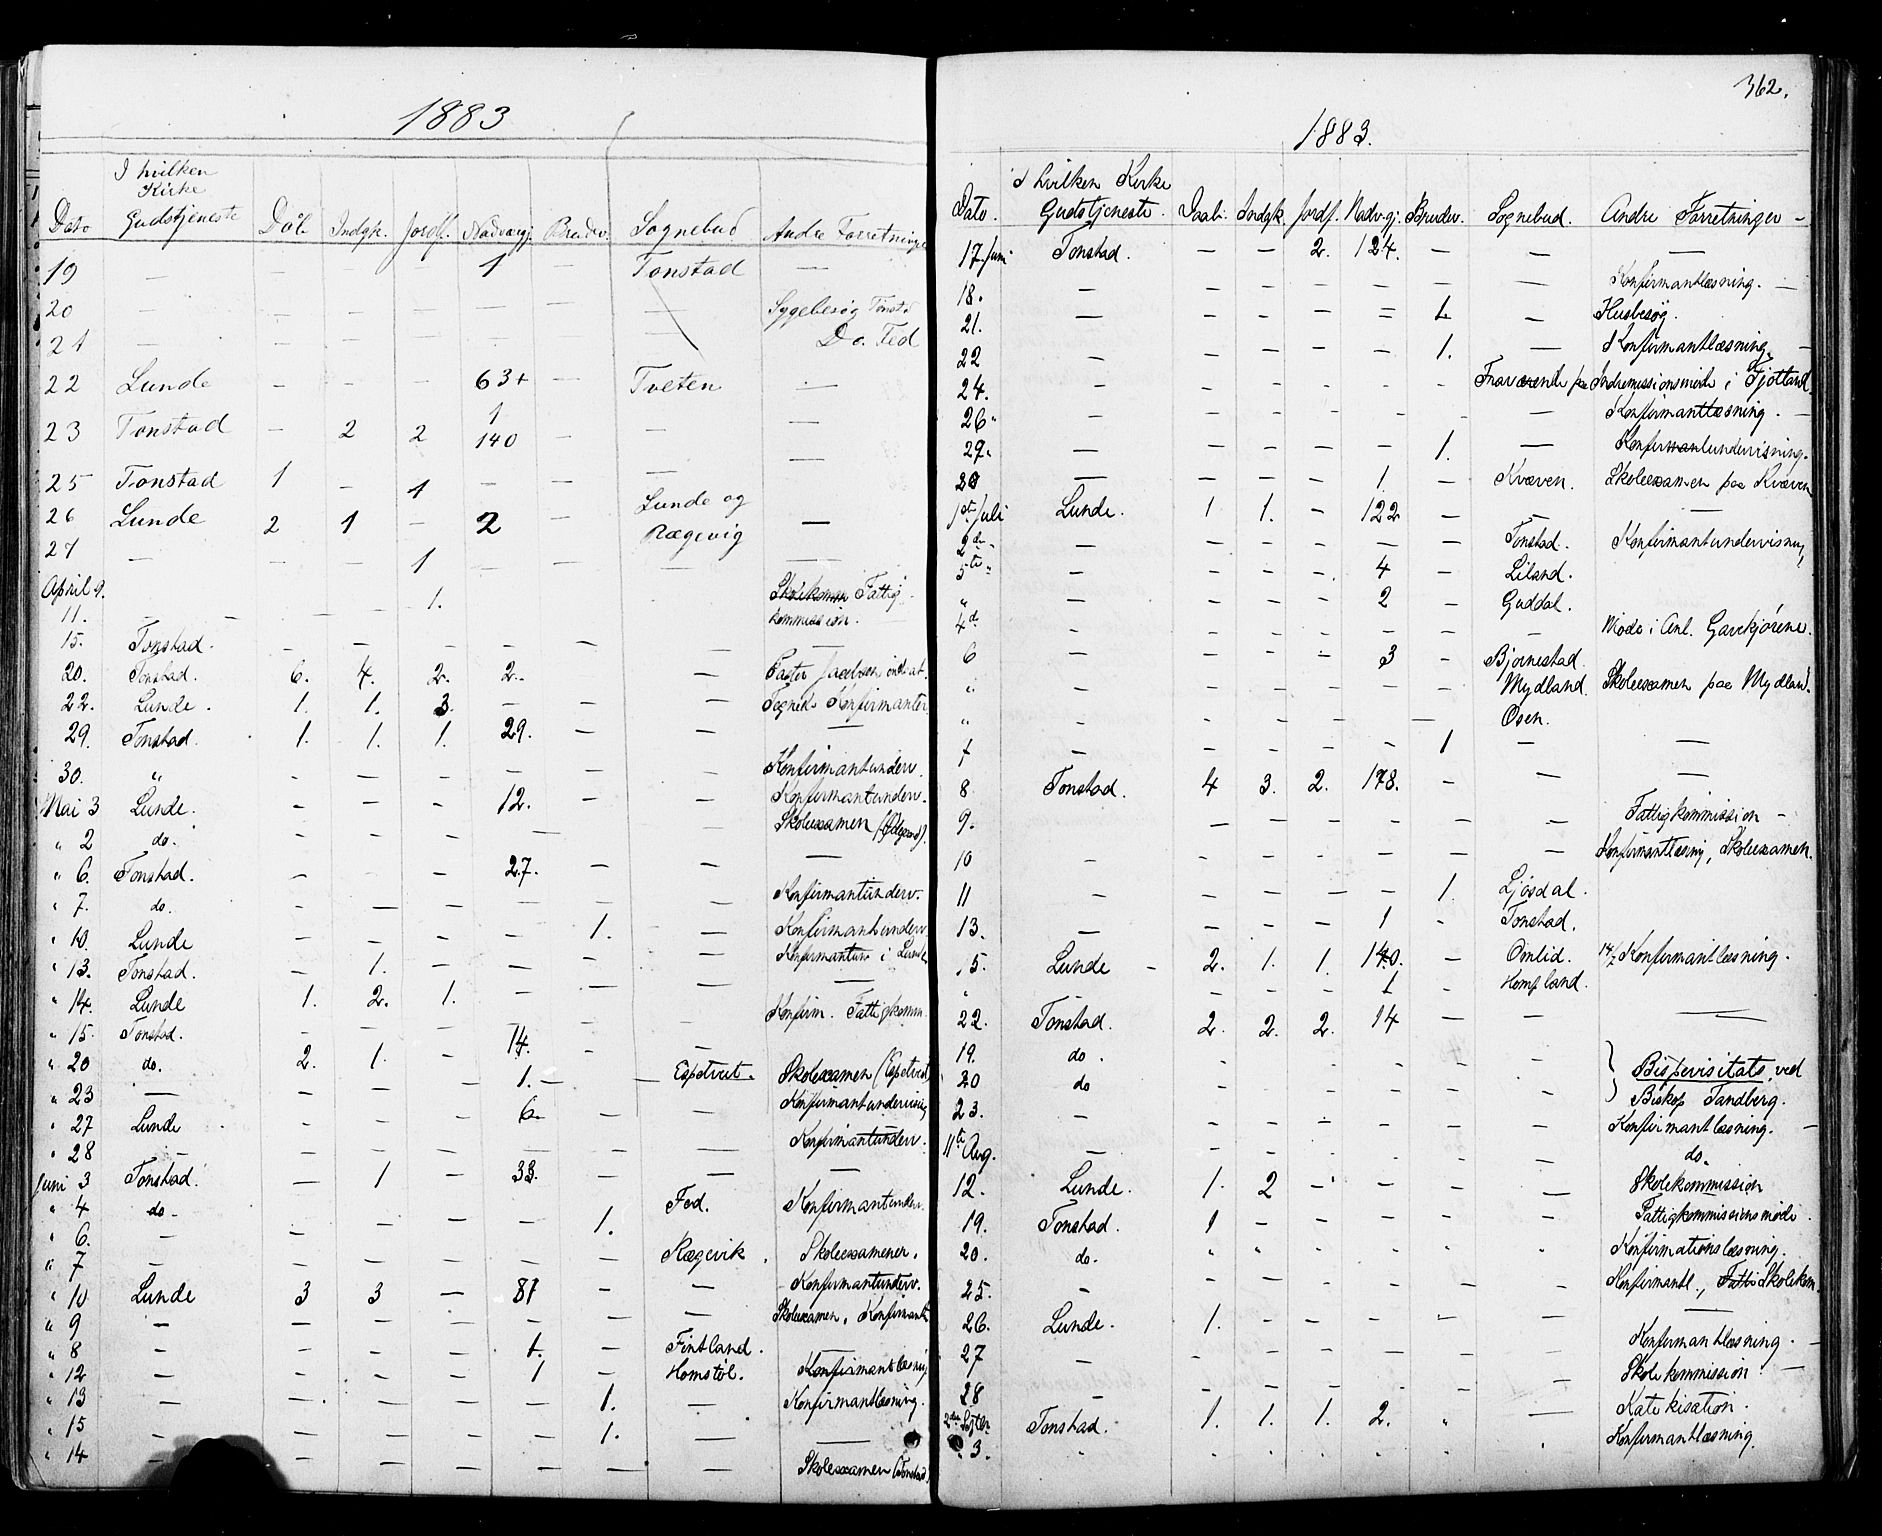 1883
Dato I hvilken Kirke Gudstjeneste Döb. Indgk. Jordf. Nadvergj. Brudev. Sognebud Andre Forretninger
19 — — — 1 — Tonstad —
20 — — — — — — Sygebesøg Tonstd
21 — — — — — — Do. Fed
22 Lunde — — — 63+1 — Tveten —
23 Tonstad — 2 2 140 — — —
25 Tonstad 1 — 1 — —
26 Lunde 2 1 — 2 — Lunde og Rægevig —
27 — — — 1 — — — —
April 9. 1. Skolekomm Fattig-
11. — — kommission.
15. Tonstad. — — — — — — —
20. Tonstad. 6. 4. 2. 2. — Pastor Jacobsen indsat.
22. Lunde. 1. 1. 3. — — — Tegnede Konfirmanter
29. Tonstad. 1. 1. 1. 29. — — —
30. " - — — — — — Konfirmantunderv.
Mai 3 Lunde. - — — 12. — — Konfirmantunderv.
" 2 do. - — — — — Skoleexamen (Ødegaard).
" 6. Tonstad. — — — 27. — — —
" 7. do. — — — — — — Konfirmantunderv.
" 10. Lunde — — — — 1. — Konfirmantunderv
" 13. Tonstad. — 1. — — — — Konfirmantun i Lunde
" 14. Lunde 1. 2. 1. — — — —
" 15. Tonstad. — — — 14. — — Konfirm. Fattigkomm.
" 20 do. 2. 1. — 1. — — Espetveit. Skoleexamen (Espetveit)
" 23 — — — — 6. — — Konfirmantundervisnig
" 27 Lunde — — — — — — Konfirmantunderv.
" 28 — — — — — — —
Juni 3 Tonstad. — 1 — 33. — — —
" 4 do. — — — — 1. Fed. Konfirmantunderv.
" 6. — — — — — —
" 7 — — — — — — Rægevik. Skoleexamener.
" 10 Lunde 3 3 — 81 — — Konfirmantunderv.
" 9 — — — — — — — Skoleexamen, Konfirmantl
" 8 — — — — 1. — Fintland.
" 12 — — — — 1 — Homstøl. Konfirmantlæsnig
" 13 — — — — — 1. — Konfirmantlæsning.
" 15 — — — — — 1. — —
" 14 — — — — — — — Skoleexamen (Tonstad)
362.
1883.
Dato. I hvilken Kirke Gudstjeneste. Daab. Indgk. Jordf. Nadv.gj. Brudev. Sognebud. Andre Forretninger -
17. Juni Tonstad. — — 2. 124. — — —
18. — — — — — — — Konfirmantlæsning. —
21. — — — — = 1. — Husbesøg.
22 — — — — — 1. — Konfirmantlæsning. —
24. — — — — — — Fraværende paa Indremissionsmøde i Fjotland.
26. — — — — — — — Konfirmantlæsning. —
27. — — — — — 1. — Konfirmantundervisning.
28 — — — — 1. — Kvæven. Skoleexamen paa Kvæven
1ste Juli Lunde. 1 1. — 122 — — —
2den — — — — — — Tonstad. Konfirmantundervisning,
5te — — — — 4 — Liland.
" — — — — 2 — Guddal.
4de — — — — — — — Møde i Anl. Gavekjørene.
6 — — — — 3 — Bjørnestad.
" — — — — — — Mydland. Skoleexamen paa Mydland.
" — — — — — Osen.
7 — — — — — 1 — —
8. Tonstad. 4 3. 2. 178. — — —
9. — — — — — — Fattigkommission -
10 — — — — — — — Konfirmantlæsnig, Skoleexamen.
11 — — — — — 1. Ljosdal.
13. — — — — 1 — Tonstad.
15. Lunde — 2. 1. 1. 140. — Omlid. 14/7 Konfirmantlæsning.
" — — — 1 — Hompland.
22. Tonstad. 2. 2. 2. 14 — — —
19. do. - - - - - - } Bispevisitats, ved
20 do - - - - - - } Biskop Tandberg.
23. — — — — — — — Konfirmantlæsning. —
11te Aug. — — — — — — — do.
12. Lunde. 1. 2 — — — — Skolekommission
19. Tonstad. 1 — — — — — Fattigkommissions møde.
20. do. " " " " " " Konfirmationslæsning.
25. — — — — — — — Konfirmantl., Fattig Skolekom.
26. Lunde. 1. — — — — — —
27 — — — — — — — Konfirmantlæsning. -
28 — — — — — — — Skolekommission. —
2den Septbr. Tonstad. 1. 1. 1. 2. " — Katekisation.
3. " - - - - - - Konfirmantlæsning.